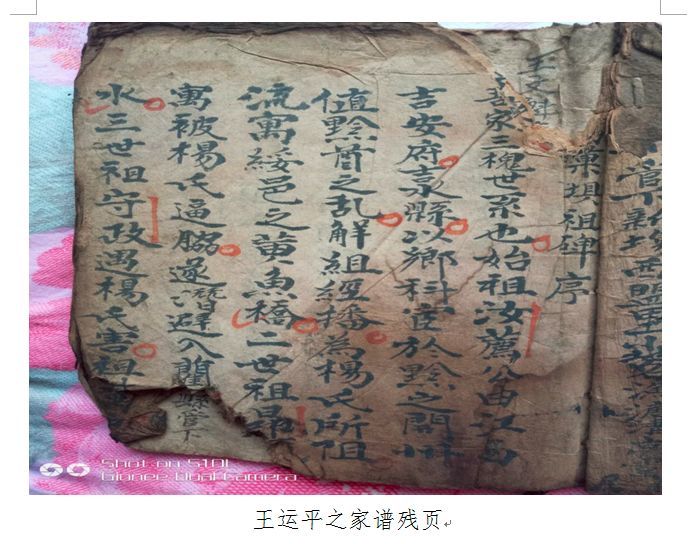 王文
埧祖碑序
吾家三槐世系也始祖汝薦公由江西
吉安府吉水縣以鄉科宦於黔之開州
值黔苗之乱解組經播為楊氏所阻
流寓綏邑之黄魚橋二世祖昂
寓被楊氏逼脇遂潛避入藺縣管下
水三世祖守政遇楊氏害祖
Shot on S10L
Gionee Dual Camera
王运平之家谱残页